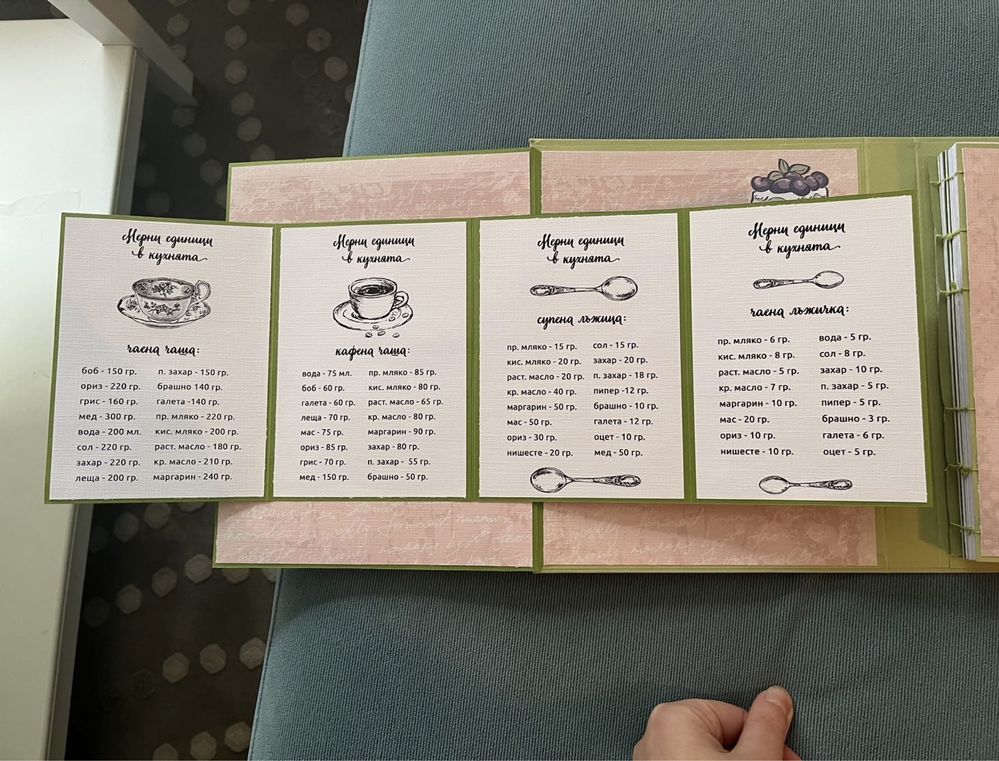 Мерни единици
в кухнята
чаена чаша:
боб - 150 гр. п. захар - 150 гр.
ориз - 220 гр. брашно 140 гр.
грис - 160 гр. галета -140 гр.
мед - 300 гр. пр. мляко - 220 гр.
вода - 200 мл. кис. мляко - 200 гр.
сол - 220 гр. раст. масло - 180 гр.
захар - 220 гр. кр. масло - 210 гр.
леща - 200 гр. маргарин - 240 гр.
Мерни единици
в кухнята
кафена чаша:
вода - 75 мл. пр. мляко - 85 гр.
боб - 60 гр. кис. мляко - 80 гр.
галета - 60 гр. раст. масло - 65 гр.
леща - 70 гр. кр. масло - 80 гр.
мас - 75 гр. маргарин - 90 гр.
ориз - 85 гр. захар - 80 гр.
грис - 70 гр. п. захар - 55 гр.
мед - 150 гр. брашно - 50 гр.
Мерни единици
в кухнята
супена лъжица:
пр. мляко - 15 гр. сол - 15 гр.
кис. мляко - 20 гр. захар - 20 гр.
раст. масло - 20 гр. п. захар - 18 гр.
кр. масло - 40 гр. пипер -12 гр.
маргарин - 50 гр. брашно - 10 гр.
мас - 50 гр. галета - 12 гр.
ориз - 30 гр. оцет - 10 гр.
нишесте - 20 гр. мед - 50 гр.
Мерни единици
в кухнята
чаена лъжичка:
пр. мляко - 6 гр. вода - 5 гр.
кис. мляко - 8 гр. сол - 8 гр.
раст. масло - 5 гр. захар - 10 гр.
кр. масло - 7 гр. п. захар - 5 гр.
маргарин - 10 гр. пипер - 5 гр.
мас - 20 гр. брашно - 3 гр.
ориз - 10 гр. галета - 6 гр.
нишесте - 10 гр. оцет - 5 гр.